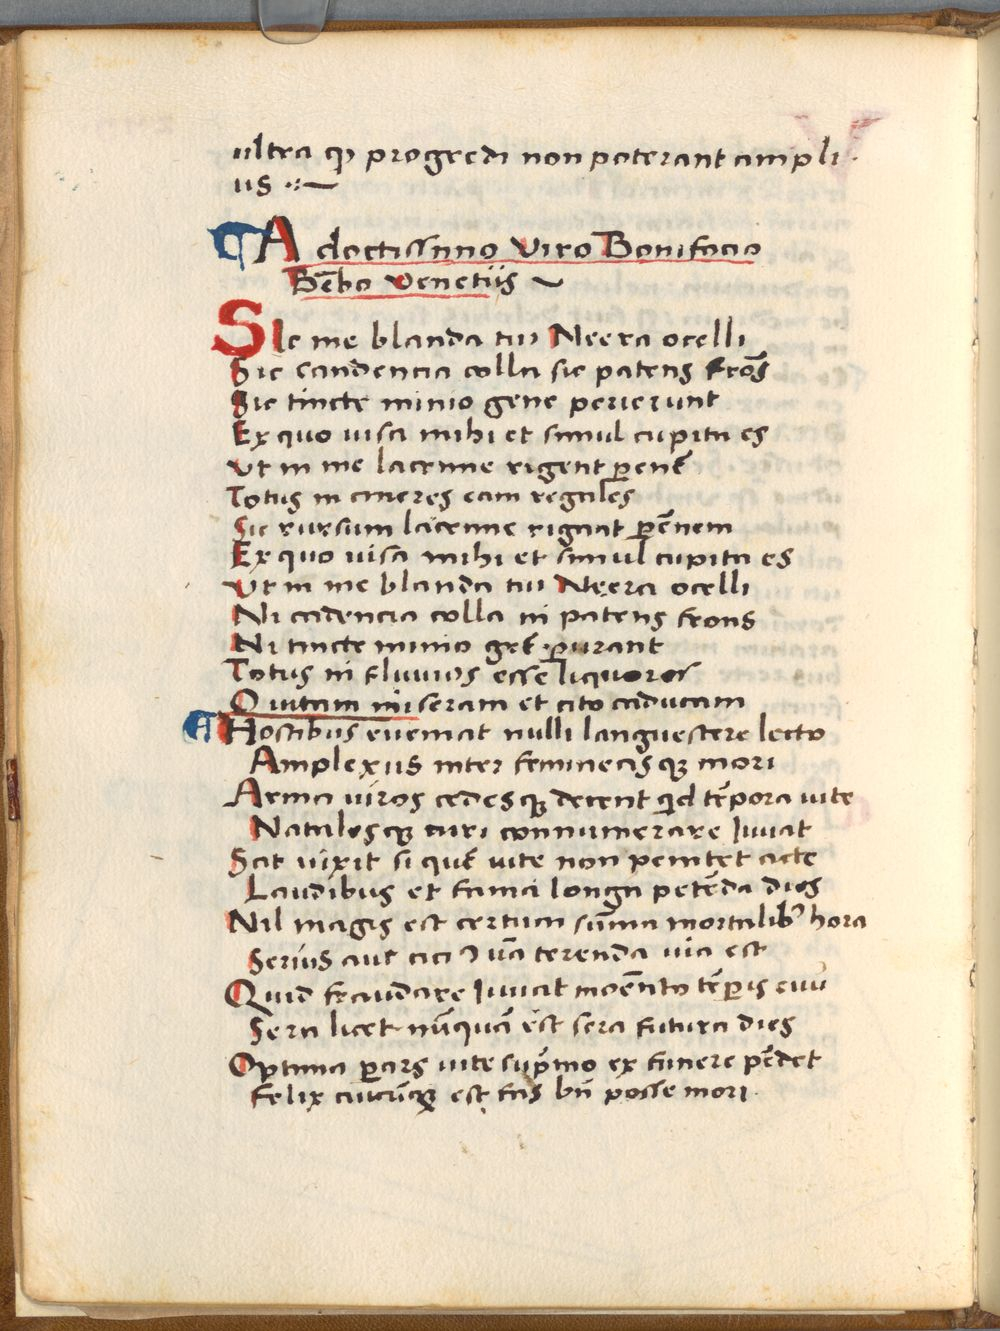 ultra qȝ progredi non poterant ampli
us
¶ Ad doctissimo Viro Bonifacio
Bēbo Venetiis
Sic me blanda tui Neera ocelli
Sic candencia colla sic patens frōs
Sic tincte minio gene perierunt
Ex quo uisa mihi et simul cupita es
Vt ni me lacrime rigent perenē
Totus in cineres eam regales
Sic rursum lacrime rigant perēnem
Ex quo uisa mihi et simul cupita es
Vt ni me blanda tui Neera ocelli
Ni cādencia colla ni patens frons
Ni tincte minio genē purant
Totus ni fluuios esse liquores
O uitam miseram et cito caducam
¶ Hostibus eueniat nulli languescere lecto
Amplexus inter femineasqȝ mori
Arma uiros cedesqȝ decent qid tēpora uite
Natalesqȝ turi connumerare Juuat
Sat uixit si quē uite non penitet acte
Laudibus et fama longa petēda dies
Nil magis est certum sūma mortalibꝰ hora
Serius aut citi9 una terenda uia est
Quid fraudare Juuat moēnto tēporis euū
Sera licet nūquā est sera futura dies
Optima pars uite supremo ex funere pēdet
Felix cuicūqȝ est fas bñ posse mori